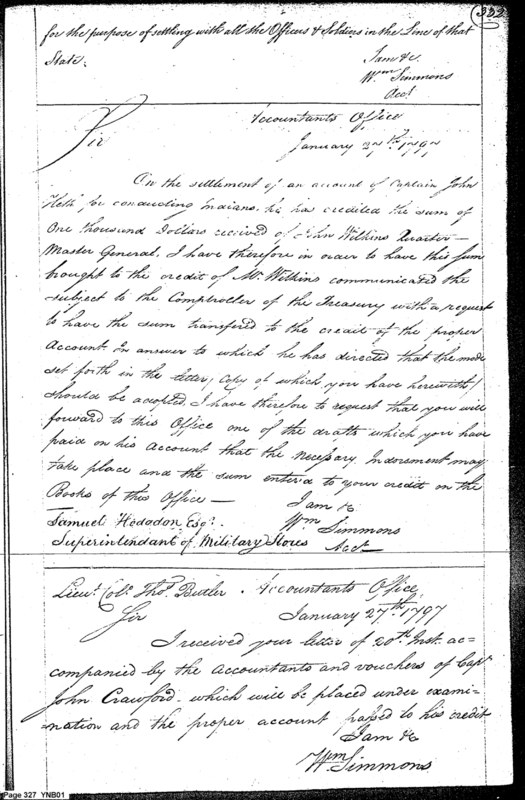 332
for the purpose of settling with all the Officers & Soldiers in the Line of that
State.
I am &c.
Wm Simmons
Acct
Accountants Office
January 27th 1797
Sir
On the settlement of an account of Captain John
Heth for conducting Indians, he has credited the sum of
One thousand Dollars received of John Wilkins Quarter-
Master General, I have therefore in order to have this sum
brought to the credit of Mr. Wilkins communicated the
subject to the Comptroller of the Treasury with a request
to have the sum transfered to the credit of the proper
Account. In answer to which he has directed that the mode
set forth in the letter, (copy of which you have herewith)
should be accepted, I have therefore to request that you will
forward to this Office one of the drafts which you have
paid on his account that the necessary Indorsment may
take place and the sum entered to your credit on the
Books of this Office —
I am &c.
Wm Simmons
Acct
Samuel Hodgdon Esqr.
Superintendant of Military Stores
Lieut. Colo. Thos. Butler. Accountants Office
January 27th 1797
Sir
I received your letter of 20th Inst. ac-
companied by the accountants and vouchers of Capt
John Crawford, which will be placed under exami-
nation and the proper account passed to his credit
I am &c
Wm Simmons
Page 327 YNB01